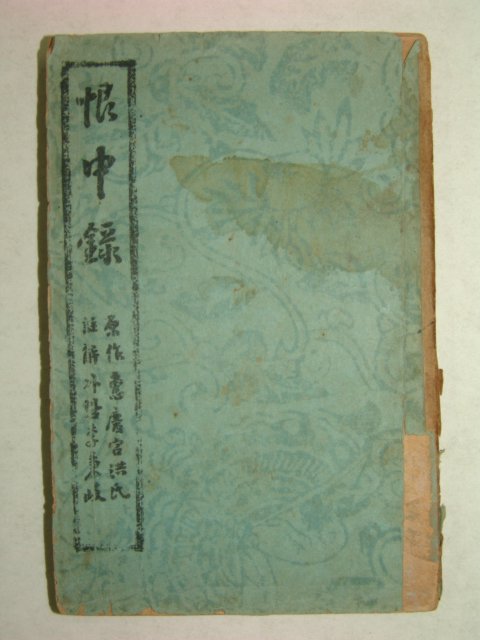 恨中錄
原作 惠慶宮洪氏
註解 가람 李秉岐